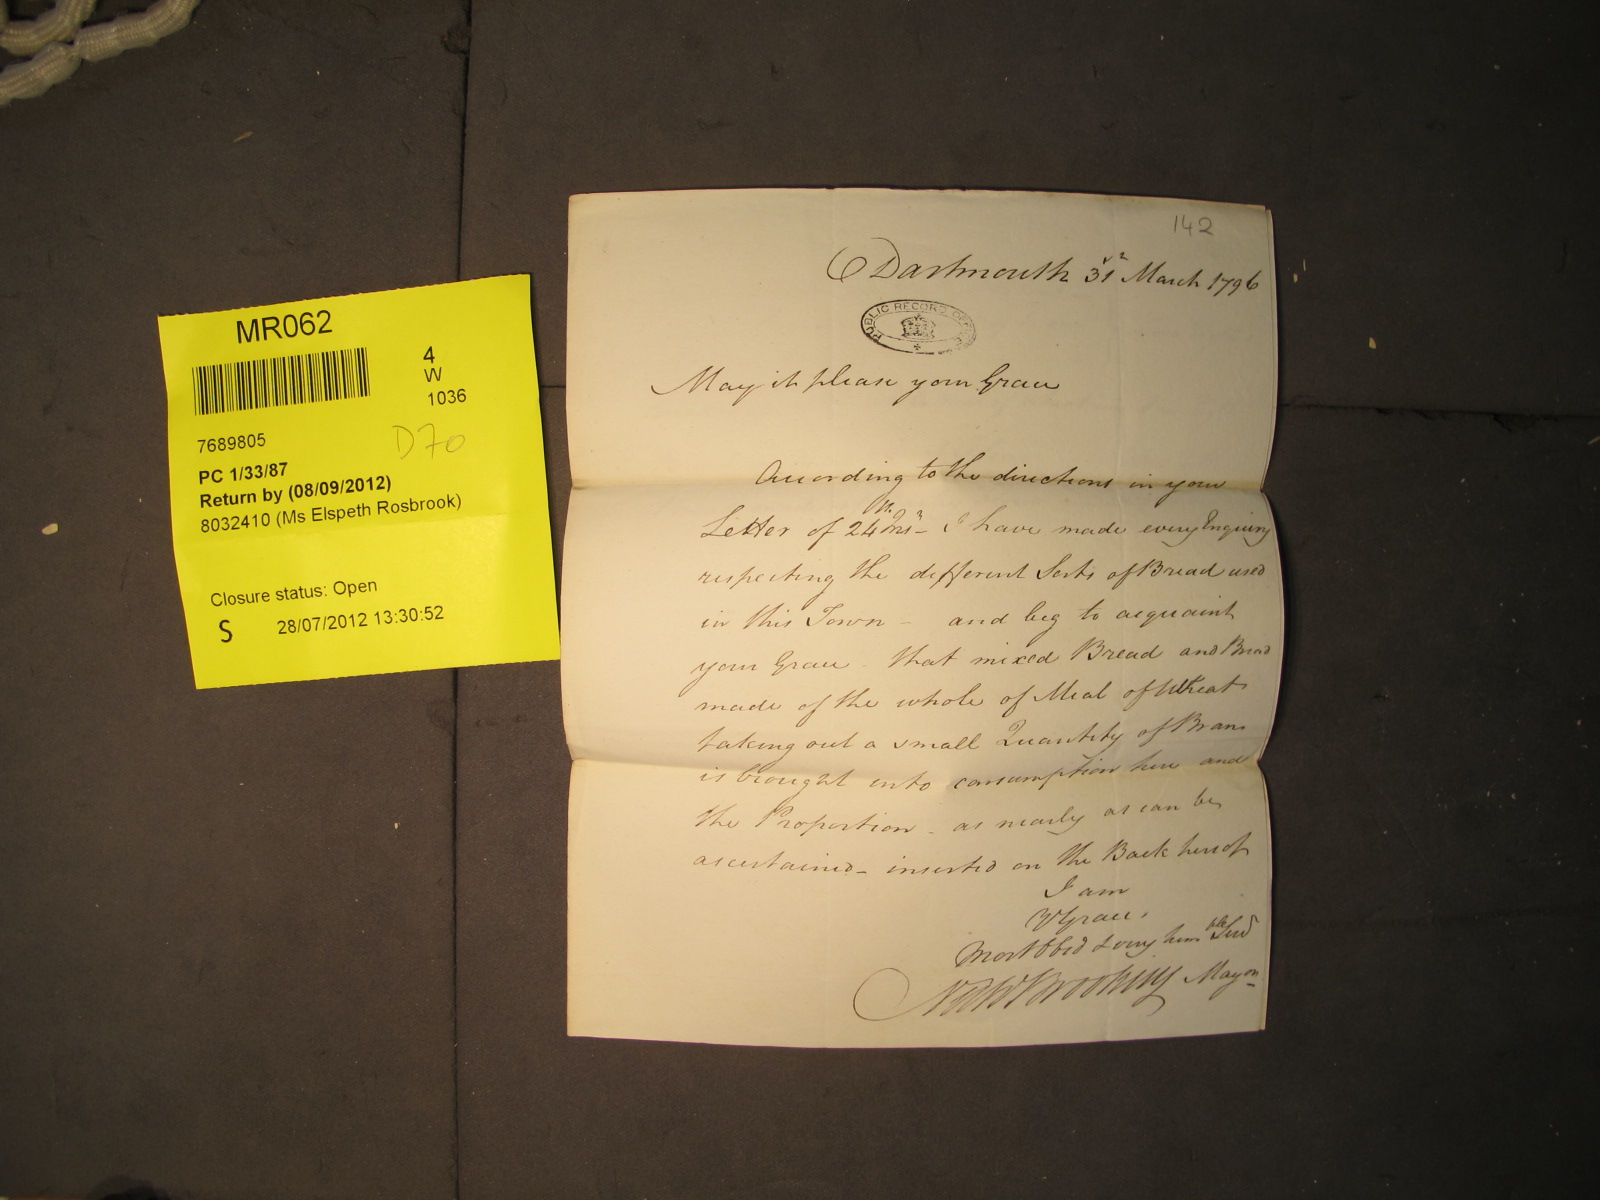 MR062
4
W
1036
7689805
D70
PC 1/33/87
Return by (08/09/2012)
8032410 (Ms Elspeth Rosbrook)
Closure status: Open
S 28/07/2012 13:30:52
142
Dartmouth 31st March 1796
PUBLIC RECORD OFFICE
May it please your Grace
According to the directions in your
Letter of 24th Inst - I have made every Enquiry
respecting the different Sorts of Bread used
in this Town - and beg to acquaint
your Grace - that mixed Bread and Bread
made of the whole of Meal of Wheat
taking out a small Quantity of Bran
is brought into consumption here and
the Proportion - as nearly as can be
ascertained - inserted on the Back hereof
I am
Yr Grace's
Most Obed & very humble Servt
Brooking Mayor